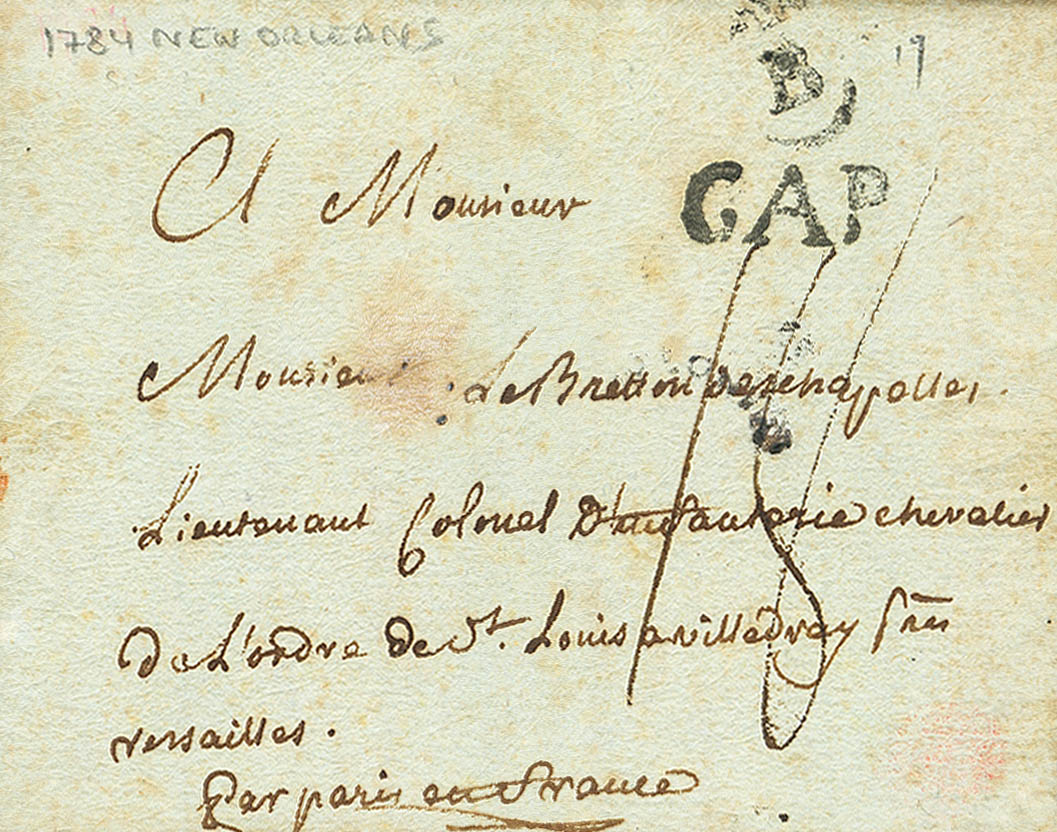 1784 NEW ORLEANS
B
19
CAP
A Monsieur
Monsieur Le Bretton Deschapelles.
18
Lieutenant Colonel D'infanterie chevalier
De L'ordre de St. Louis a villedvray prés
versailles.
Par paris en France